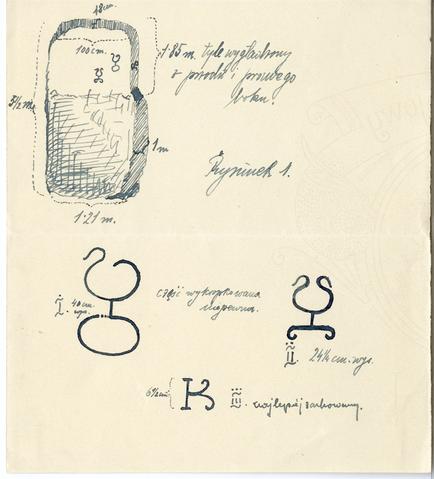 18cm.
100cm.
1·85 m. tyle wygładzony
z przodu i prawego
boku.
3½ m.
1 m
1·21 m.
Rysunek 1.
I. 40 cm. wys.
część wykropkowana
niepewna.
II. 24¼ cm. wys.
6½ cm
III. najlepiej zachowany.